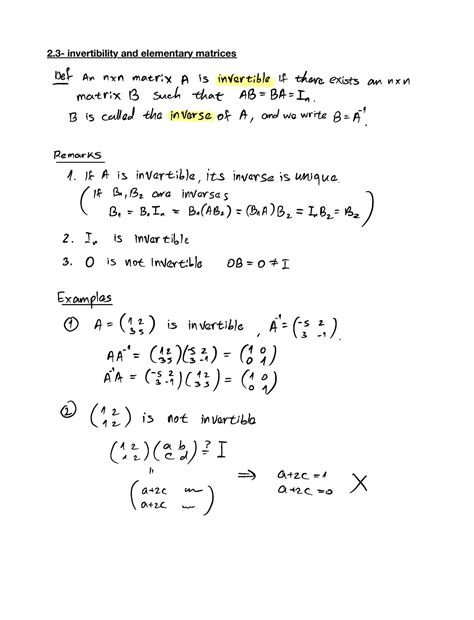 2.3- invertibility and elementary matrices
Def An n×n matrix A is invertible if there exists an n×n
matrix B such that AB = BA = Iₙ.
B is called the inverse of A, and we write B = A⁻¹.
Remarks
1. If A is invertible, its inverse is unique.
( If B₁, B₂ are inverses
B₁ = B₁Iₙ = B₁(AB₂) = (B₁A)B₂ = IₙB₂ = B₂ )
2. Iₙ is invertible
3. O is not invertible OB = O ≠ I
Examples
① A = (1 2 / 3 5) is invertible, A⁻¹ = (-5 2 / 3 -1).
AA⁻¹ = (1 2 / 3 5)(-5 2 / 3 -1) = (1 0 / 0 1)
A⁻¹A = (-5 2 / 3 -1)(1 2 / 3 5) = (1 0 / 0 1)
② (1 2 / 1 2) is not invertible
(1 2 / 1 2)(a b / c d) ?= I
=
(a+2c / a+2c) ⇒ a+2c = 1
a+2c = 0 X